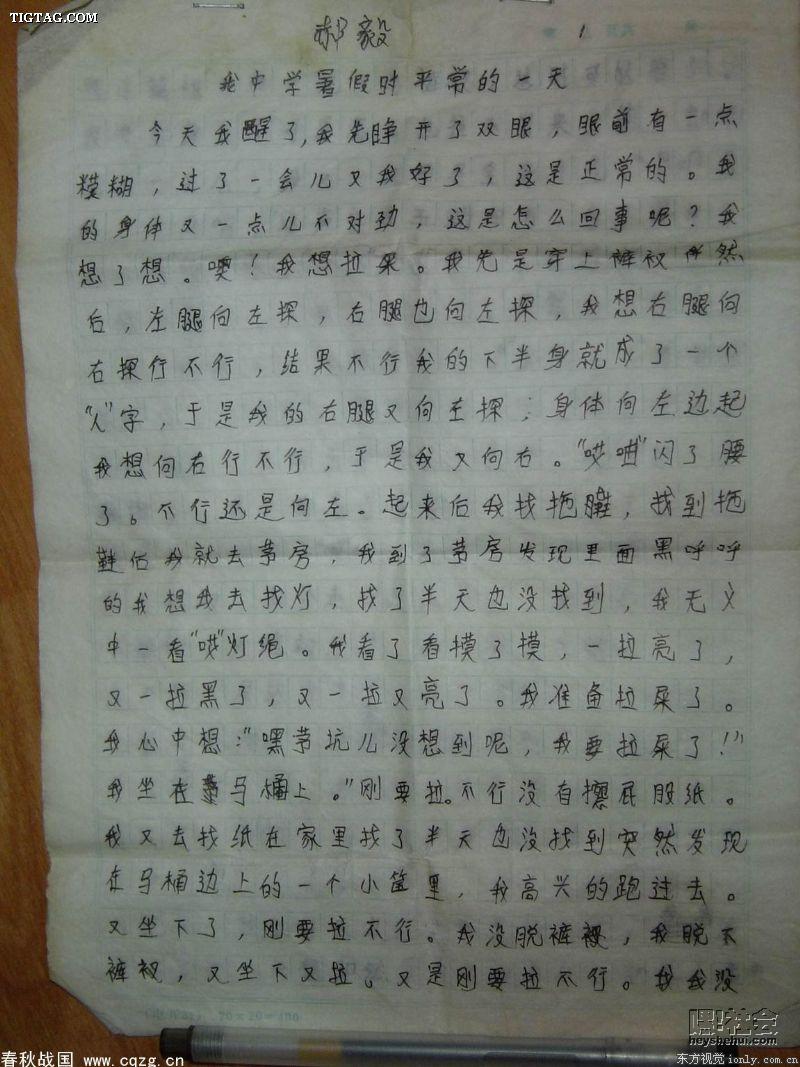 TIGTAG.COM
郝毅 1
我中学暑假时平常的一天
今天我醒了,我先睁开了双眼,眼前有一点
模糊,过了一会儿又我好了,这是正常的。我
的身体又一点儿不对劲,这是怎么回事呢?我
想了想。噢!我想拉屎。我先是穿上裤衩 然
后,左腿向左探,右腿也向左探,我想右腿向
右探行不行,结果不行我的下半身就成了一个
“人”字,于是我的右腿又向左探;身体向左边起
我想向右行不行,于是我又向右。“哎呦”闪了腰
了。不行还是向左。起来后我找拖鞋,找到拖
鞋后我就去茅房,我到了茅房发现里面黑呼呼
的我想我去找灯,找了半天也没找到,我无义
中一看“哎”灯绳。我看了看摸了摸,一拉亮了,
又一拉黑了,又一拉又亮了。我准备拉屎了。
我心中想:“嘿茅坑儿没想到呢,我要拉屎了!”
我坐在马桶上。”刚要拉。不行没有擦屁股纸。
我又去找纸在家里找了半天也没找到突然发现
在马桶边上的一个小筐里,我高兴的跑过去。
又坐下了,刚要拉不行。我没脱裤衩,我脱下
裤衩,又坐下又拉。又是刚要拉不行。我我没
20×20=400
嘿!社会
heyshehui.com
春秋战国 www.cqzg.cn
东方视觉 ionly.com.cn